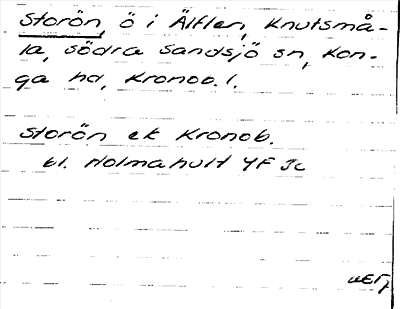 Storön, ö i Älften, Knutsmå-
la, södra Sandsjö sn, Kon-
ga hd, Kronob. l.
Storön ek Kronob.
bl. Holmahult 4F